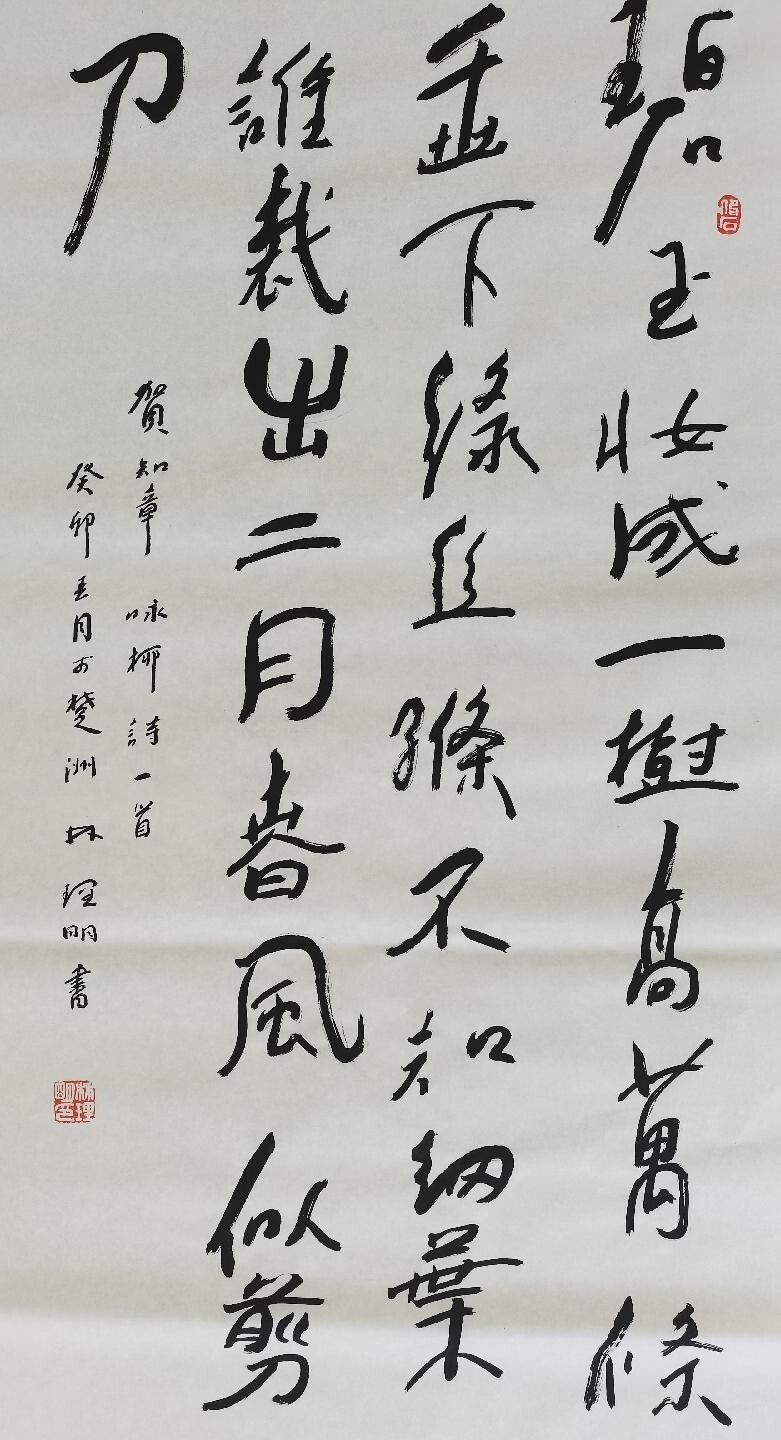 碧玉妝成一樹高萬條
垂下綠丝絛不知細葉
誰裁出二月春風似剪
刀
賀知章 咏柳 詩一首
癸卯五月於楚洲 林理明書
林理明